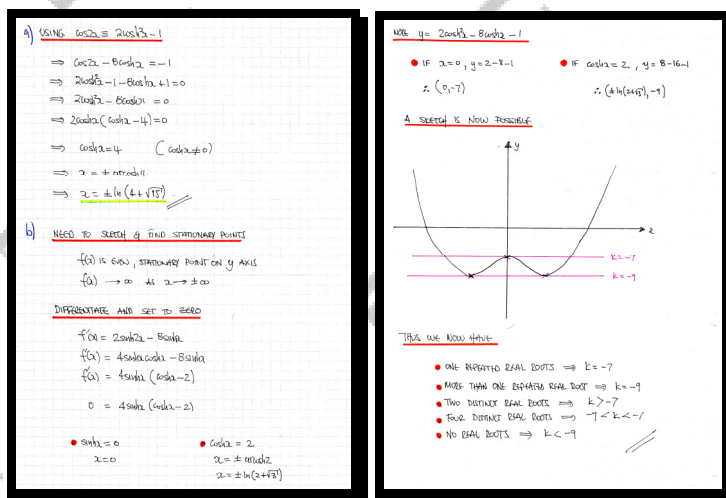 a) USING cos2x ≡ 2cosh²x - 1
⇒ cos2x - 8coshx = -1
⇒ 2cosh²x - 1 - 8coshx + 1 = 0
⇒ 2cosh²x - 8coshx = 0
⇒ 2coshx (coshx - 4) = 0
⇒ coshx = 4 (coshx ≠ 0)
⇒ x = ± arcosh4
⇒ x = ± ln (4 + √15)
b) NEED TO SKETCH & FIND STATIONARY POINTS
f(x) IS EVEN, STATIONARY POINT ON y AXIS
f(x) → ∞ AS x → ± ∞
DIFFERENTIATE AND SET TO ZERO
f'(x) = 2sinh2x - 8sinhx
f'(x) = 4sinhxcoshx - 8sinhx
f'(x) = 4sinhx (coshx - 2)
0 = 4sinhx (coshx - 2)
• sinhx = 0
x = 0
• coshx = 2
x = ± arcosh2
x = ± ln (2 + √3)
NOTE y = 2cosh²x - 8coshx - 1
• IF x = 0, y = 2 - 8 - 1
∴ (0, -7)
• IF coshx = 2, y = 8 - 16 - 1
∴ (± ln(2+√3), -9)
A SKETCH IS NOW POSSIBLE
y
x
k = -7
k = -9
THUS WE NOW HAVE
• ONE REPEATED REAL ROOTS ⇒ k = -7
• MORE THAN ONE REPEATED REAL ROOT ⇒ k = -9
• TWO DISTINCT REAL ROOTS ⇒ k > -7
• FOUR DISTINCT REAL ROOTS ⇒ -9 < k < -7
• NO REAL ROOTS ⇒ k < -9